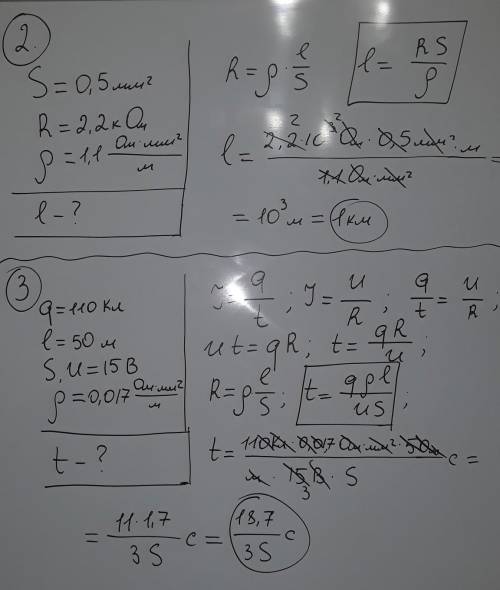 2.
S = 0,5 мм²
R = 2,2 кОм
ρ = 1,1 Ом·мм²/м
l – ?
R = ρ · l/S
l = RS/ρ
l = 2,2·10³ Ом · 0,5 мм² · м / 1,1 Ом·мм² =
= 10³ м = 1 км
3
q = 110 Кл
l = 50 м
S, U = 15 В
ρ = 0,017 Ом·мм²/м
t – ?
J = q/t ; J = U/R ; q/t = U/R ;
Ut = qR ; t = qR/U ;
R = ρ l/S ; t = qρl/US ;
t = 110Кл · 0,017 Ом·мм² · 50м / м · 15 В · S c =
3
= 11·1,7/3S c = 18,7/3S c